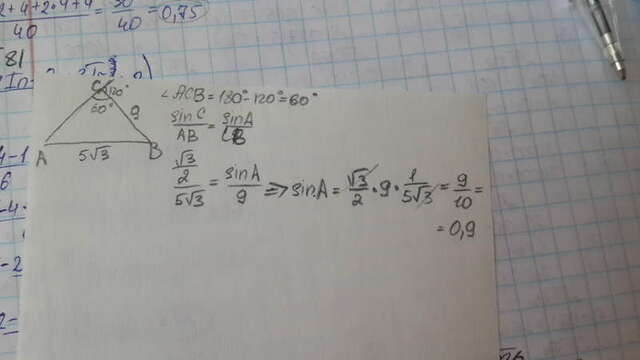 2+4+2·4+4
40
40
= 0,75
81
C
120°
60°
9
A
5√3
B
∠ACB = 180° - 120° = 60°
sinC / AB = sinA / CB
√3/2 / 5√3 = sinA / 9 => sinA = √3/2 · 9 · 1/5√3 = 9/10 =
= 0,9
4-1
6
-4·
-2
2-